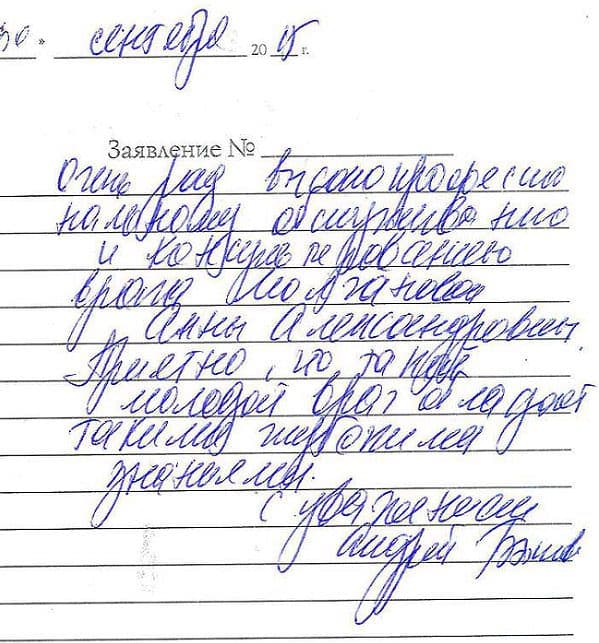 30 » сентября 2015 г.
Заявление №
Очень рад высокопрофессио
нальному обслуживанию
и консультированию
врача Молчановой
Анны Александровны.
Приятно, что такой
молодой врач обладает
такими широкими
знаниями.
С уважением
Андрей